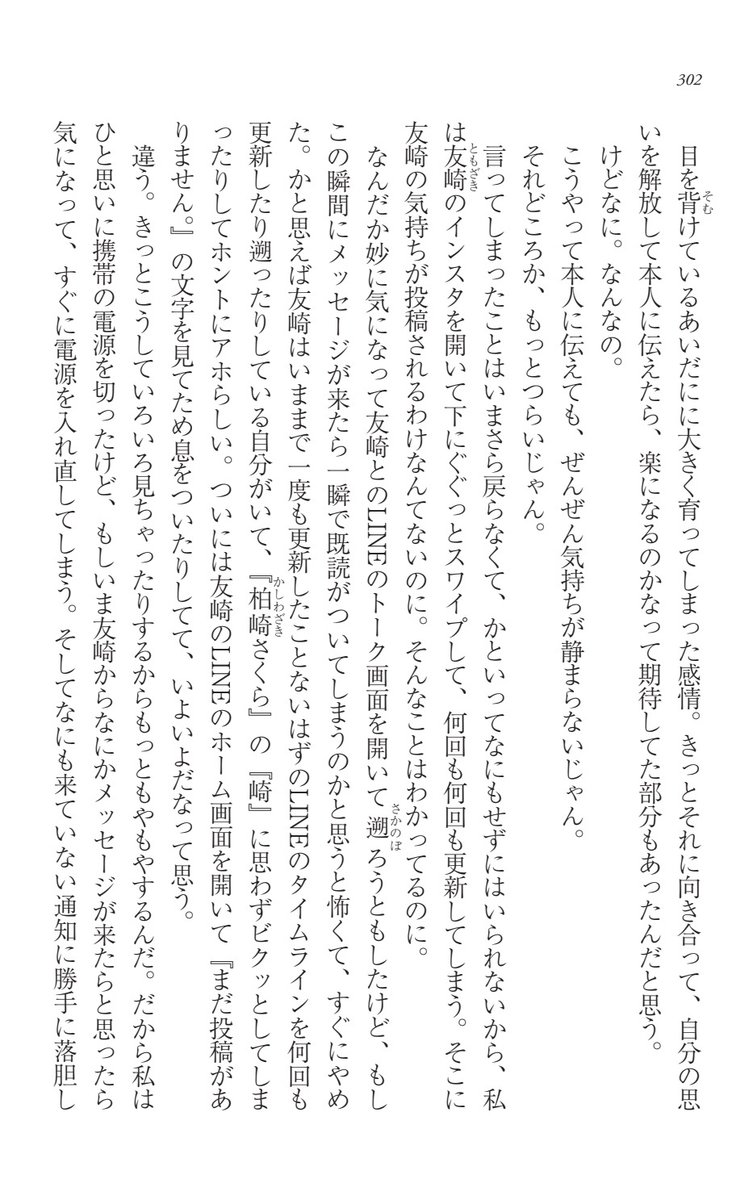 302
目を背けているあいだにに大きく育ってしまった感情。きっとそれに向き合って、自分の思
いを解放して本人に伝えたら、楽になるのかなって期待してた部分もあったんだと思う。
けどなに。なんなの。
こうやって本人に伝えても、ぜんぜん気持ちが静まらないじゃん。
それどころか、もっとつらいじゃん。
言ってしまったことはいまさら戻らなくて、かといってなにもせずにはいられないから、私
は友崎のインスタを開いて下にぐぐっとスワイプして、何回も何回も更新してしまう。そこに
友崎の気持ちが投稿されるわけなんてないのに。そんなことはわかってるのに。
なんだか妙に気になって友崎とのLINEのトーク画面を開いて遡ろうともしたけど、もし
この瞬間にメッセージが来たら一瞬で既読がついてしまうのかと思うと怖くて、すぐにやめ
た。かと思えば友崎はいままで一度も更新したことないはずのLINEのタイムラインを何回も
更新したり遡ったりしている自分がいて、『柏崎さくら』の『崎』に思わずビクッとしてしま
ったりしてホントにアホらしい。ついには友崎のLINEのホーム画面を開いて『まだ投稿があ
りません。』の文字を見てため息をついたりしてて、いよいよだなって思う。
違う。きっとこうしていろいろ見ちゃったりするからもっともやもやするんだ。だから私は
ひと思いに携帯の電源を切ったけど、もしいま友崎からなにかメッセージが来たらと思ったら
気になって、すぐに電源を入れ直してしまう。そしてなにも来ていない通知に勝手に落胆し